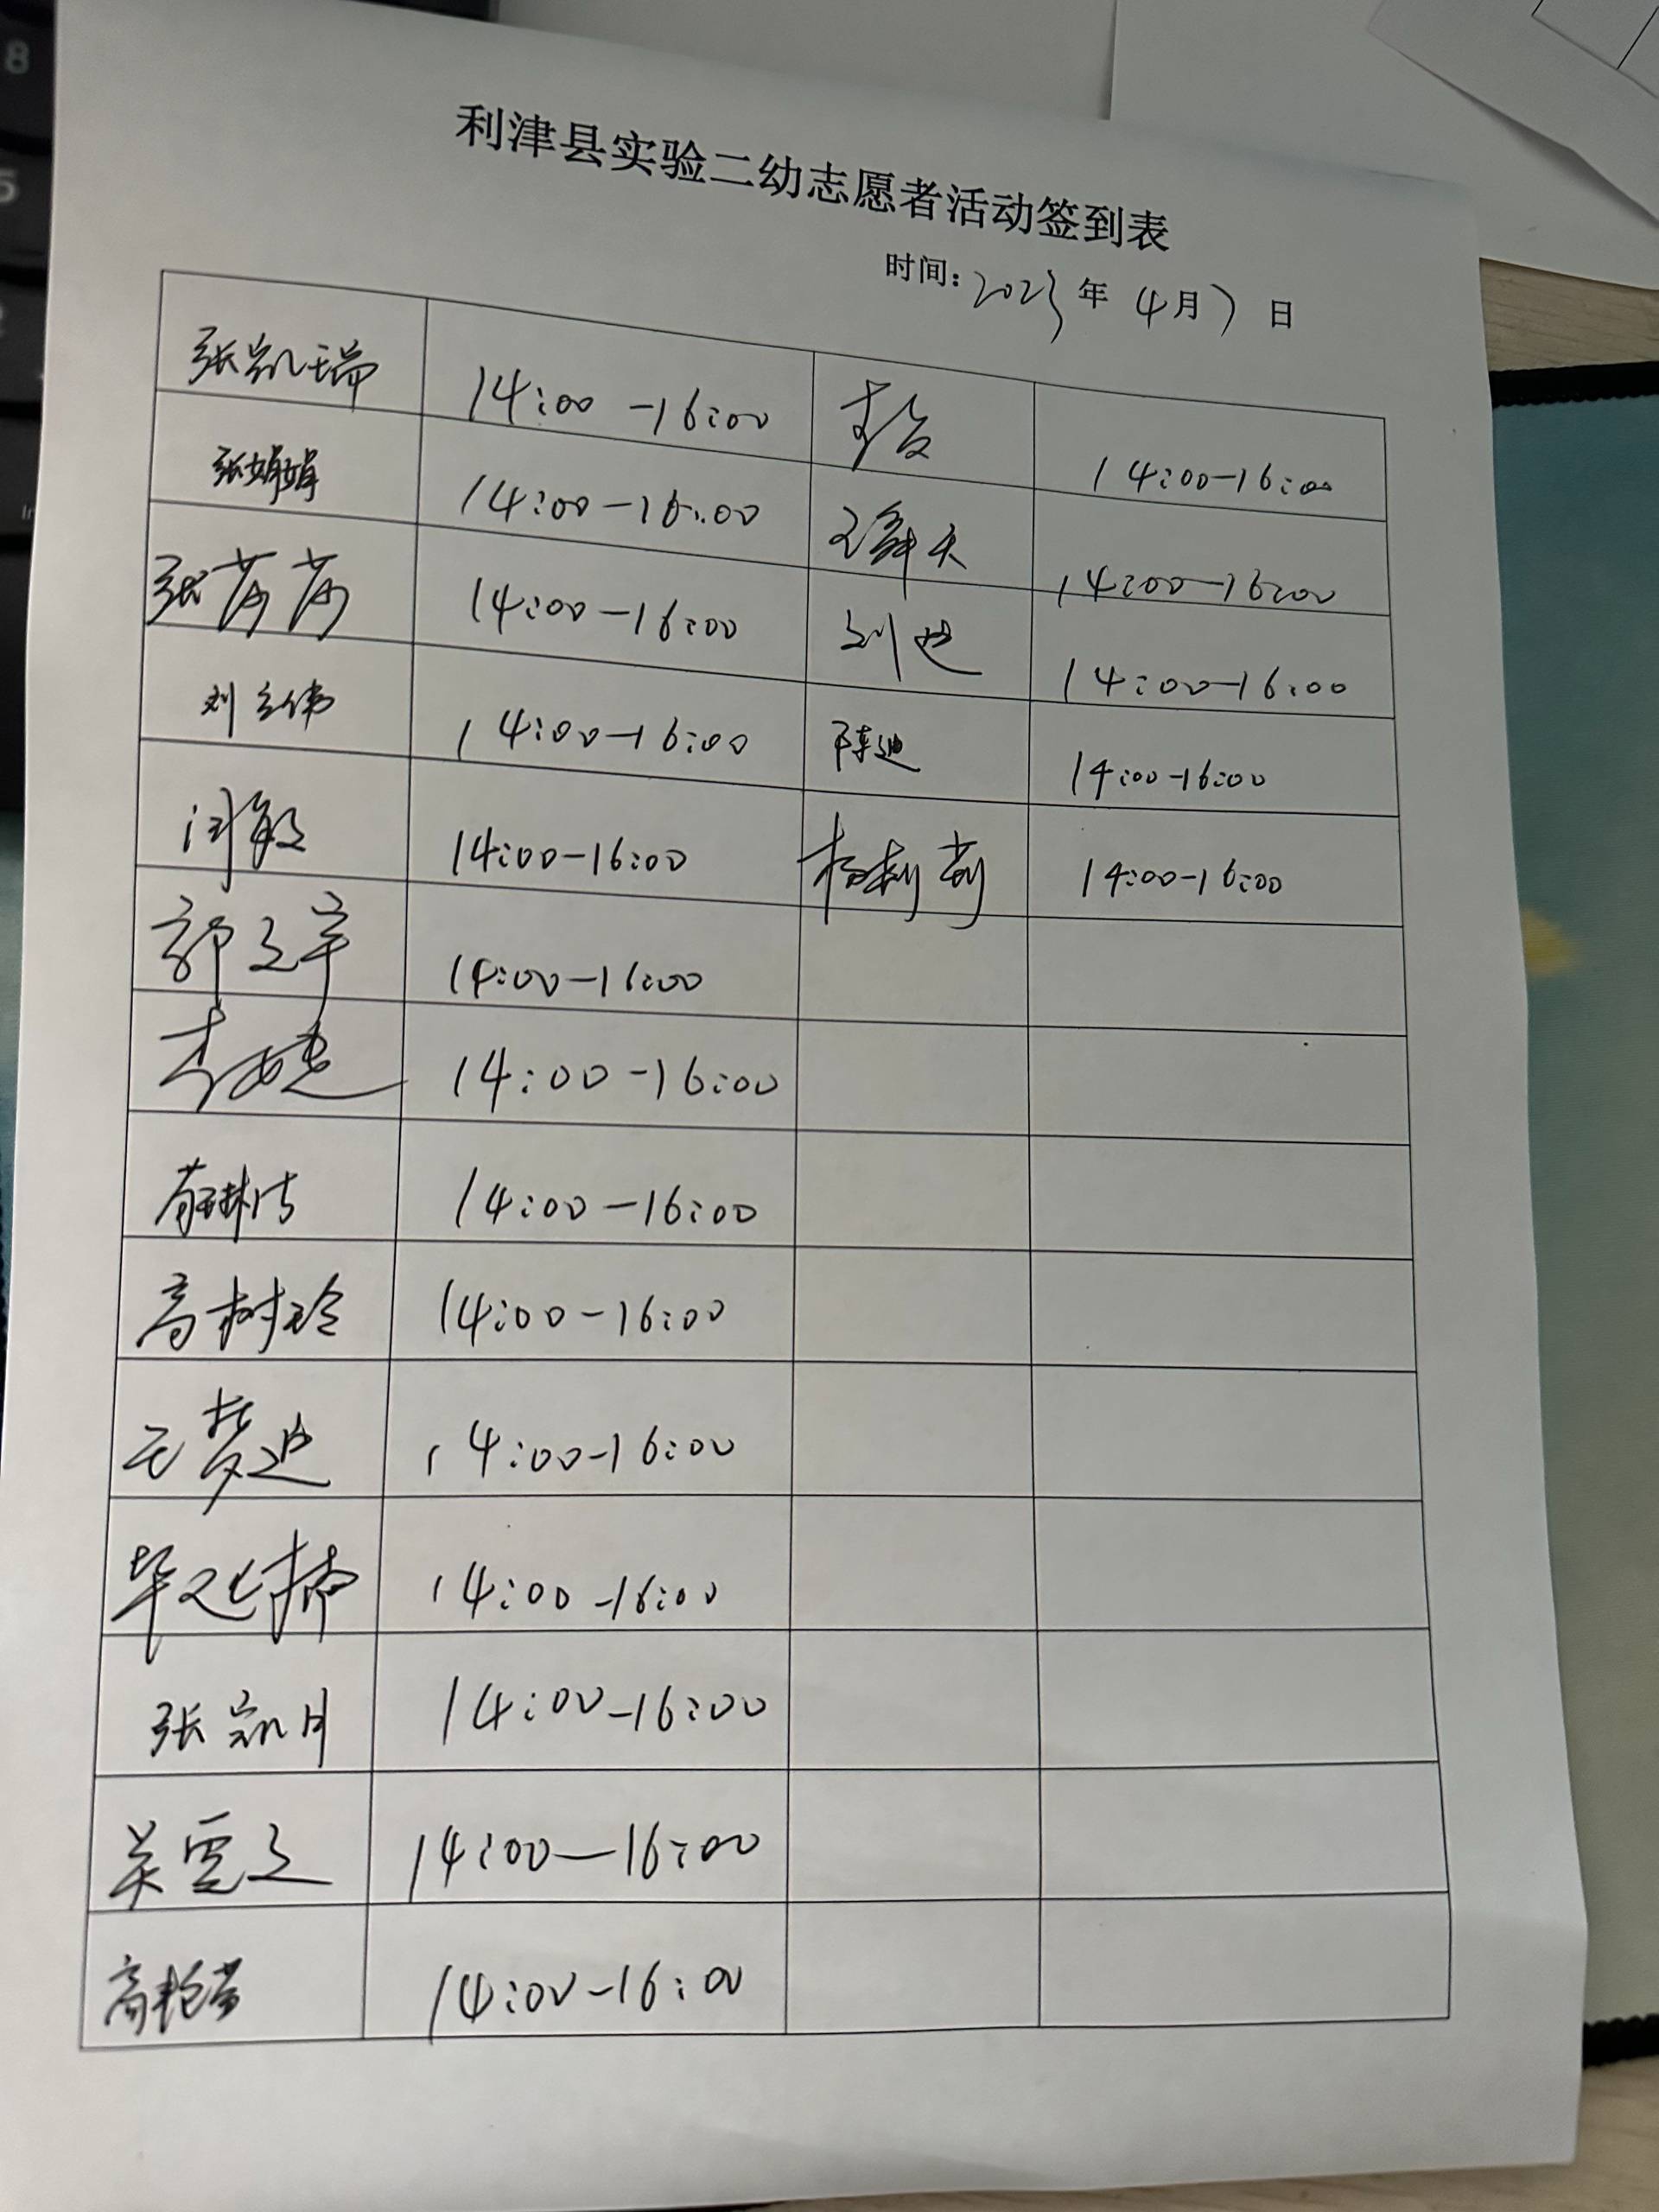 利津县实验二幼志愿者活动签到表
时间：2023年 4月7日
张凯瑞 14:00-16:00 14:00-16:00
张娟娟 14:00-16:00 14:00-16:00
张莎莎 14:00-16:00 刘迪 14:00-16:00
刘立伟 14:00-16:00 陈迪 14:00-16:00
闫敏 14:00-16:00 杨莉莉 14:00-16:00
郭文宇 14:00-16:00
14:00-16:00
14:00-16:00
高树玲 14:00-16:00
王梦迪 14:00-16:00
14:00-16:00
张凯月 14:00-16:00
吴雪文 14:00-16:00
高艳芳 14:00-16:00